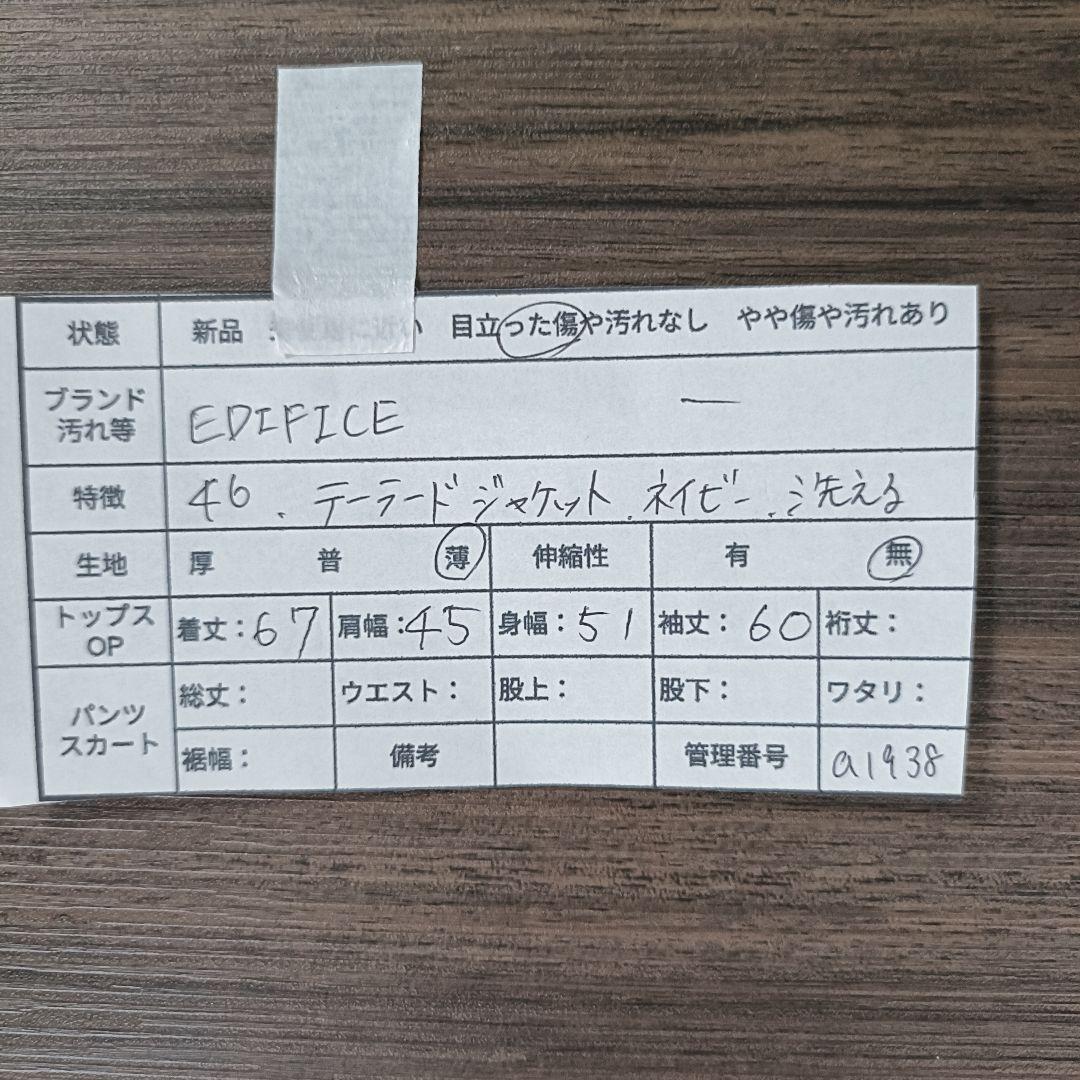 状態 新品 い 目立った傷や汚れなし やや傷や汚れあり
ブランド 汚れ等 EDIFICE ー
特徴 46. テーラードジャケット.ネイビー.洗える
生地 厚 普 薄 伸縮性 有 無
トップス OP 着丈:67 肩幅:45 身幅:51 袖丈:60 裄丈:
パンツ スカート 総丈: ウエスト: 股上: 股下: ワタリ:
裾幅: 備考 管理番号 a1938